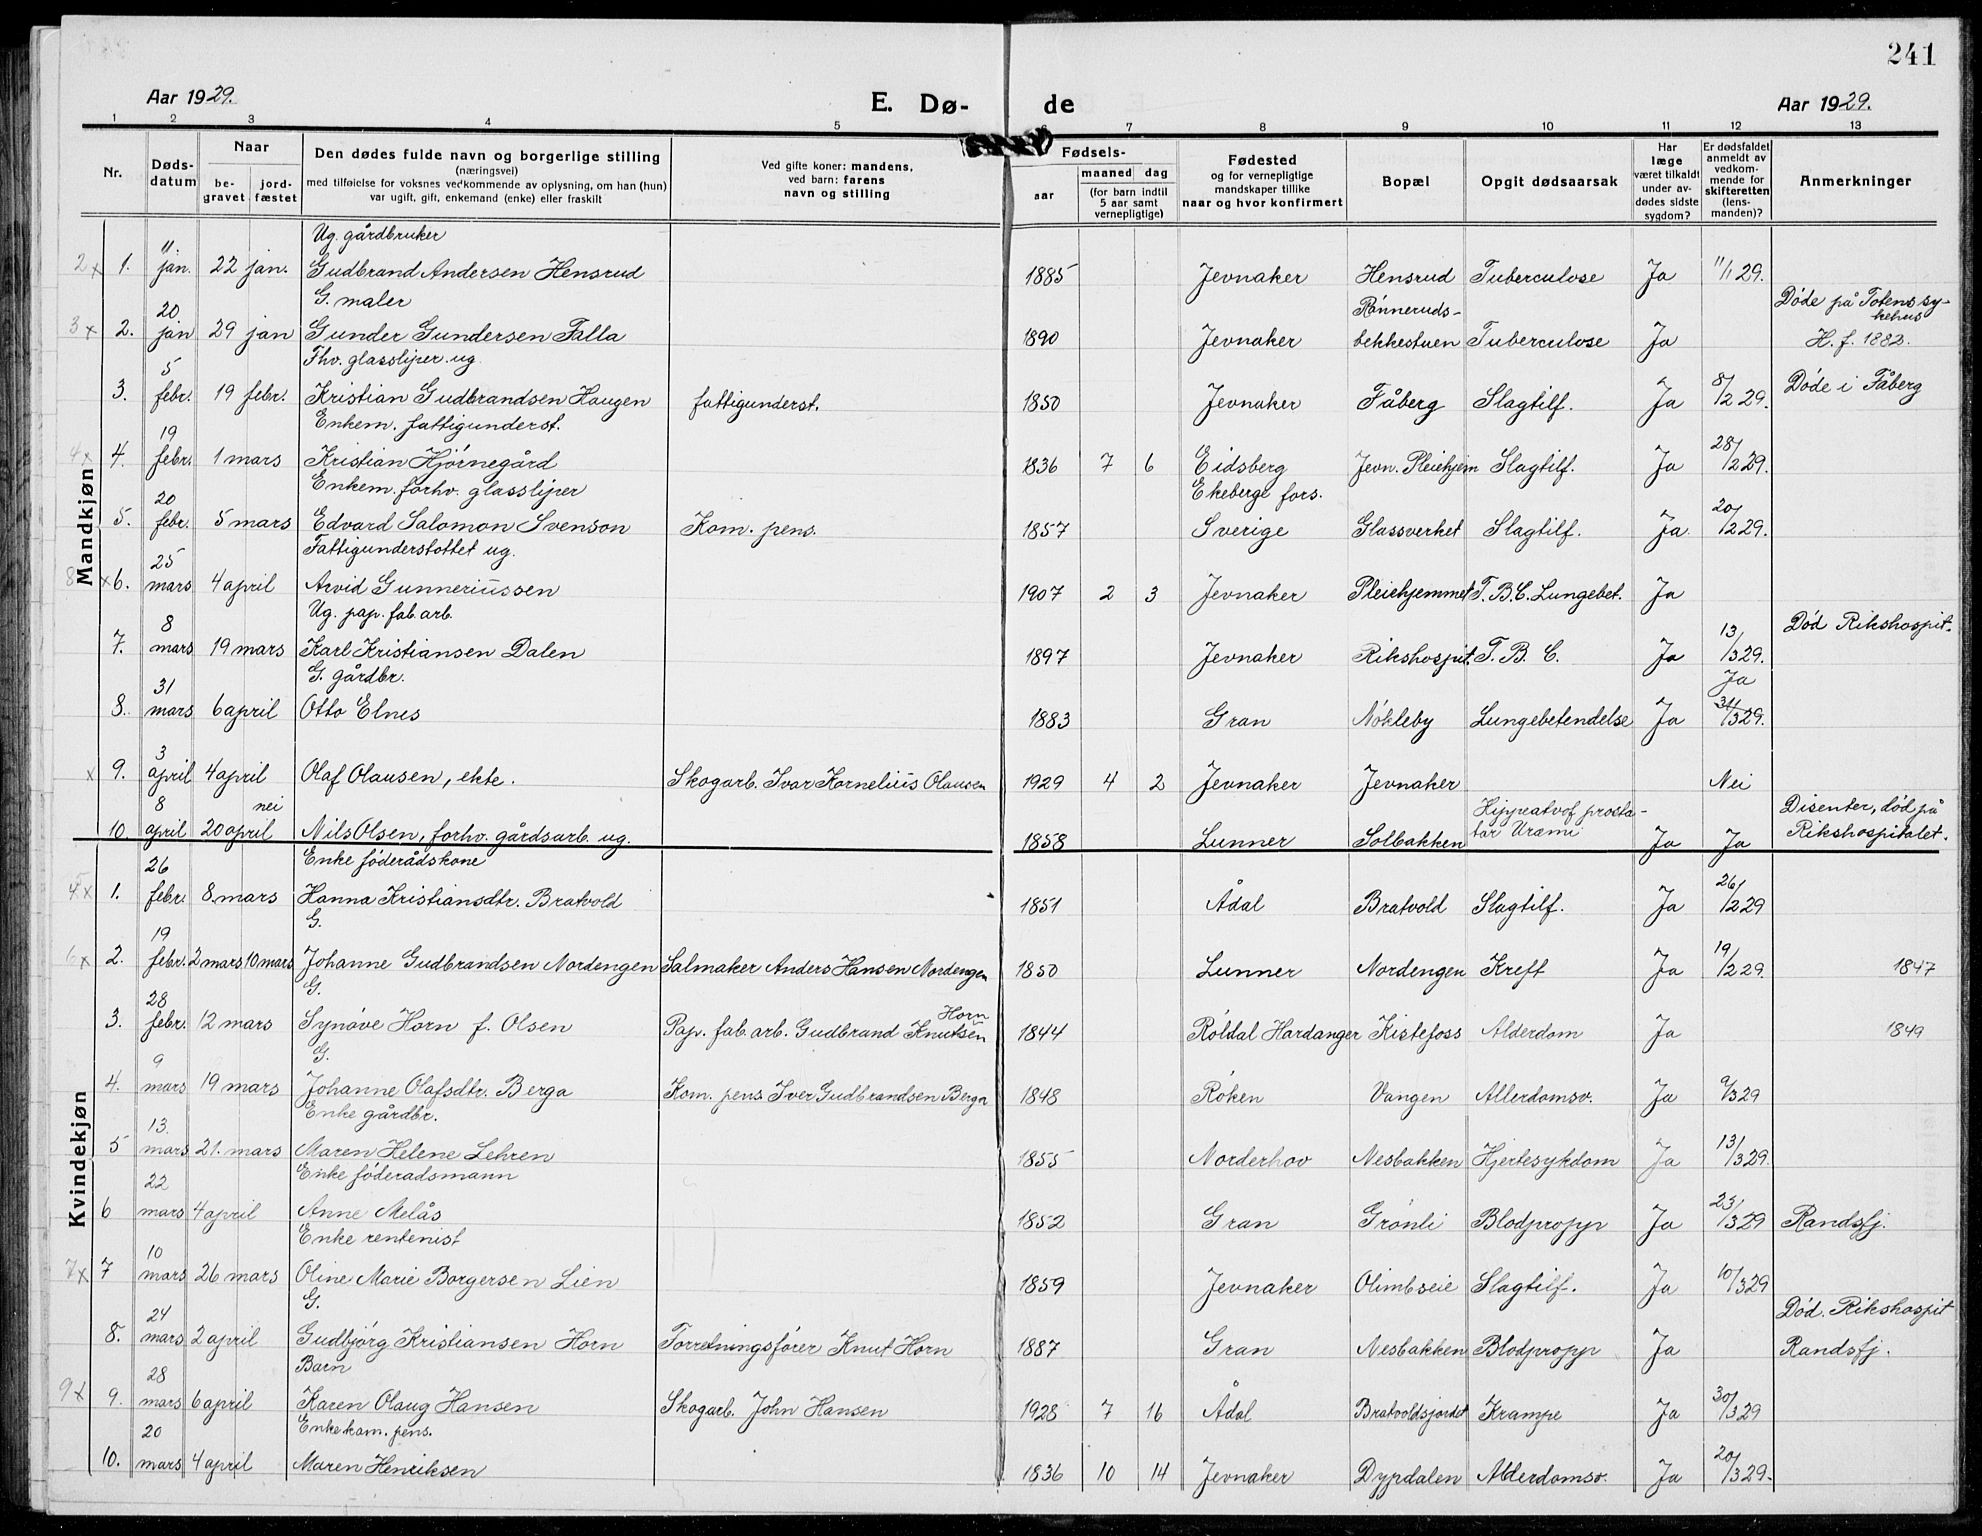 241
Aar 1929.
E. Dø- de
Aar 1929.
1 2 3 4 5 6 7 8 9 10 11 12 13
Nr.
Døds-datum
Naar
be-gravet
jord-fæstet
Den dødes fulde navn og borgerlige stilling
(næringsvei)
med tilføielse for voksnes vedkommende av oplysning, om han (hun)
var ugift, gift, enkemand (enke) eller fraskilt
Ved gifte koner: mandens,
ved barn: farens
navn og stilling
Fødsels-
aar
maaned dag
(for barn indtil
5 aar samt
vernepligtige)
Fødested
og for vernepligtige
mandskaper tillike
naar og hvor konfirmert
Bopæl
Opgit dødsaarsak
Har
læge
været tilkaldt
under av-
dødes sidste
sygdom?
Er dødsfaldet
anmeldt av
vedkom-
mende for
skifteretten
(lens-
manden)?
Anmerkninger
Mandkjøn
Ug. gårdbruker
2x 1. 11. jan. 22 jan. Gudbrand Andersen Hensrud 1885 Jevnaker Hensrud Tuberculose Ja 11/1 29.
G. maler
3x 2. 20 jan 29 jan Gunder Gundersen Falla 1890 Jevnaker Rønneruds-bekkestuen Tuberculose Ja Døde på Totens sykehus H. f. 1882.
Fhv. glassliper ug.
3. 5 febr. 19 febr. Kristian Gudbrandsen Haugen fattigunderst. 1850 Jevnaker Fåberg Slagtilf. Ja 8/2 29. Døde i Fåberg
Enkem. fattigunderst.
4x 4. 19 febr. 1 mars Kristian Hjørnegård 1836 7 6 Eidsberg Jevn. Pleiehjem Slagtilf. Ja 28/2 29.
Enkem. forhv. glassliper
5. 20 febr. 5 mars Edvard Salomon Svenson Kom. pens. 1857 Ekeberge fors. Sverige Glassverket Slagtilf. Ja. 20/2 29.
Fattigunderstottet ug.
8 x 6. 25 mars 4 april Arvid Gunneriussen 1907 2 3 Jevnaker Pleiehjemmet T.B.C. Lungebet. Ja
Ug. pap. fab. arb.
7. 8 mars 19 mars Karl Kristiansen Dalen 1897 Jevnaker Rikshospit. T. B. C. Ja 13/3 29. Død Rikshospit.
G. gårdbr.
8. 31 mars 6 april Otto Elnes 1883 Gran Nøkleby Lungebetendelse Ja Ja 31/3 29.
x 9. 3 april 4 april Olaf Olausen, ekte. Skogarb. Ivar Kornelius Olausen 1929 4 2 Jevnaker Jevnaker Nei
10. 8 april 20 april nei Nils Olsen, forhv. gårdsarb. ug. 1858 Lunner Solbakken Uræmi Ja Ja Disenter, død på Rikshospitalet.
Kvindekjøn
Enke føderådskone
x 1. 26 febr. 8. mars Hanna Kristiansdtr. Bratvold 1851 Ådal Bratvold Slagtilf. Ja 26/2 29
G.
6x 2. 19 febr. 2 mars 10. mars Johanne Gudbrandsen Nordengen Salmaker Anders Hansen Nordengen 1850 Lunner Nordengen Kreft Ja 19/2 29. 1847
G.
3. 28 febr. 12 mars Synøve Horn f. Olsen Pap. fab. arb. Gudbrand Knutsen Horn 1844 Røldal Hardanger Kistefoss Alderdom Ja 1849
G.
4. 9 mars 19 mars Johanne Olafsdtr. Berga Kom. pens Iver Gudbrandsen Berga 1848 Røken Vangen Allerdomsv. Ja 9/3 29
Enke gårdbr.
5 13. mars 21. mars Maren Helene Lehren 1855 Norderhov Nesbakken Hjertesykdom Ja 13/3 29.
Enke føderadsmann
6 22 mars 4 april Anne Melås 1852 Gran Grønli Blodpropp Ja 23/3 29 Randsfj.
Enke rentenist
7x 7 10 mars 26 mars Oline Marie Borgersen Lien 1859 Jevnaker Olimbseie Slagtilf. Ja 10/3 29
G.
8. 24 mars 2 april Gudbjörg Kristiansen Horn Forretningsfører Knut Horn 1887 Gran Nesbakken Blodpropp Ja Død. Rikshospit Randsfj.
Barn
9x 9. 28 mars 6 april Karen Olaug Hansen Skogarb. John Hansen 1928 7 16 Ådal Bratvoldsjordet Krampe Ja 30/3 29
Enke kom. pens.
10. 20 mars 4 april Maren Henriksen 1836 10 14 Jevnaker Dypdalen Alderdomsv. Ja 20/3 29.